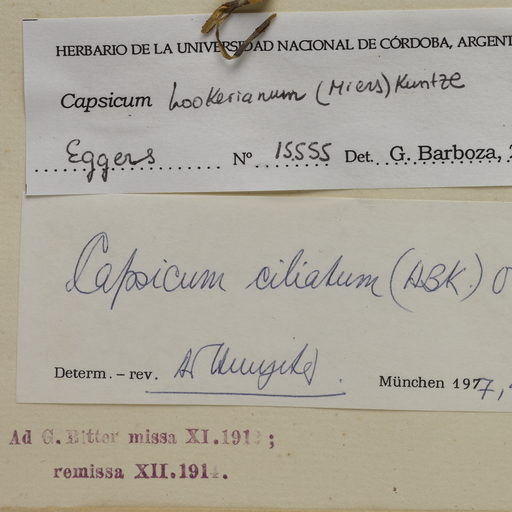 HERBARIO DE LA UNIVERSIDAD NACIONAL DE CÓRDOBA, ARGENT
Capsicum hookerianum (Miers) Kuntze
Eggers Nº 15555 Det. G. Barboza,
Capsicum ciliatum (HBK.)
Determ. – rev.
München 197
Ad G. Bitter missa XI.191 ;
remissa XII.191 .